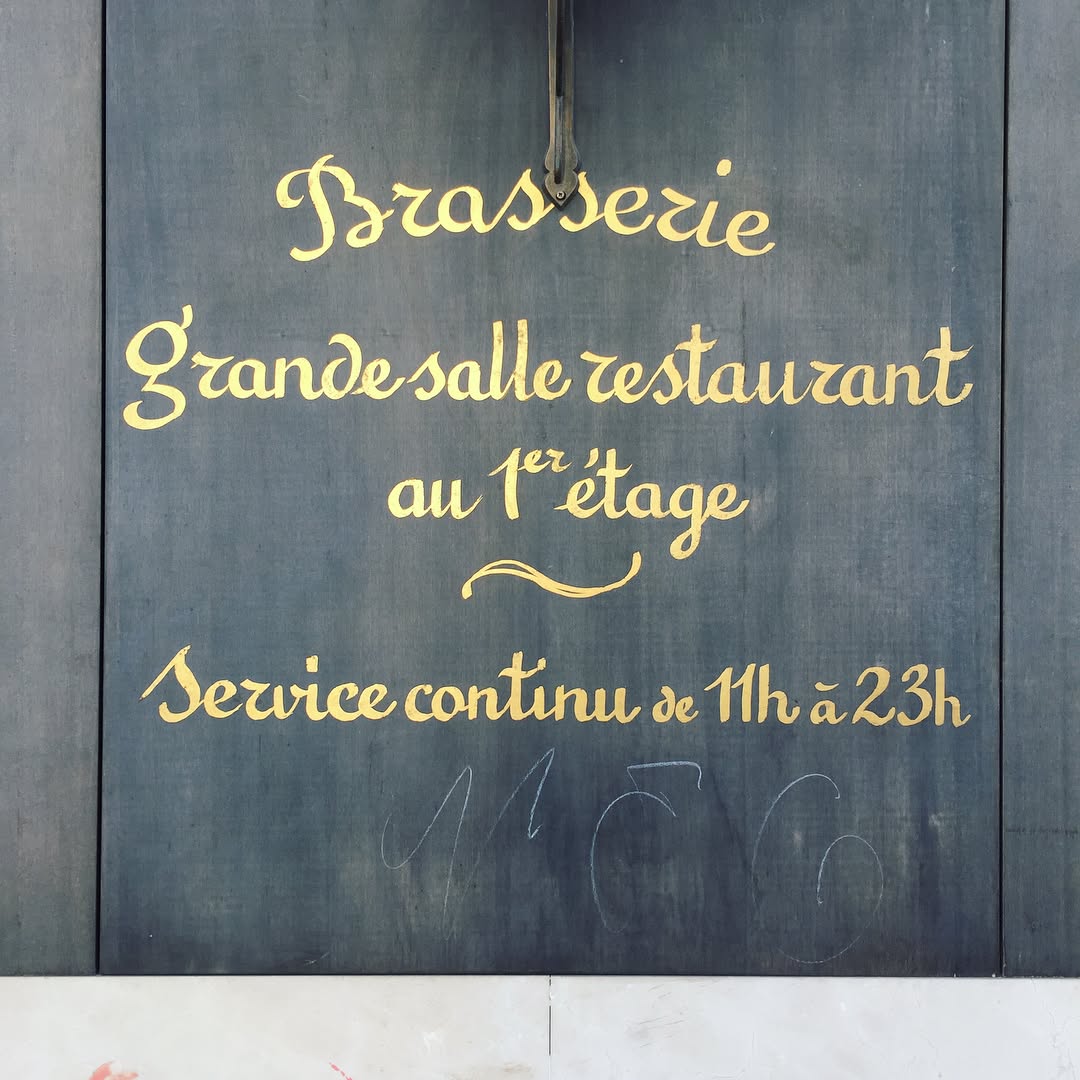 Brasserie
grande salle restaurant
au 1er étage
Service continu de 11h à 23h